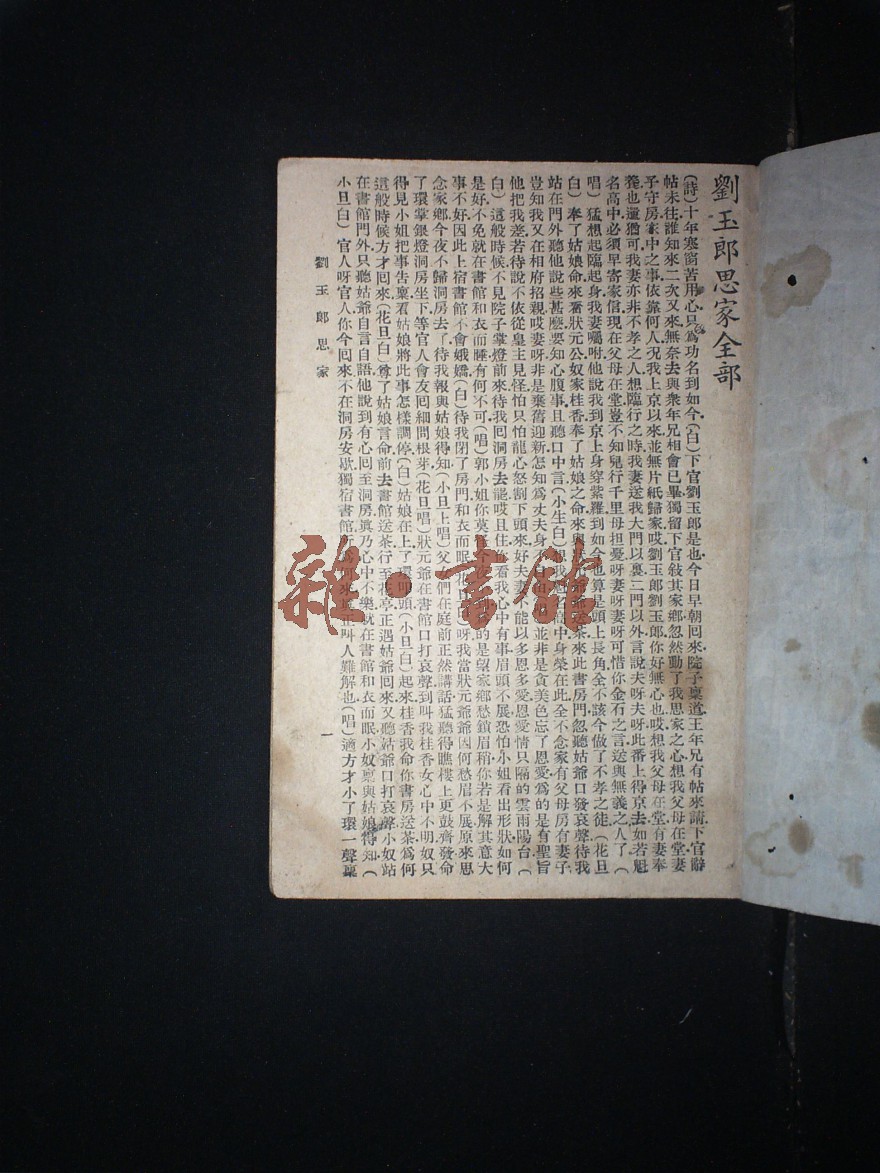 劉玉郎思家全部
(詩)十年寒窗苦用心只爲功名到如今(白)下官劉玉郎是也今日早朝回來院子稟道王年兄有帖來請下官辭
帖未往誰知來二次又來無奈去與衆年兄相會已畢獨留下官敍其家鄉忽然動了我思家之心想我父母在堂妻
子守房家中之事依靠何人况我上京以來並無片紙歸家哎劉玉郎劉玉郎你好無心也哎想我父母在堂有妻奉
養也還猶可我妻亦非不孝之人想臨行之時我妻送我大門以裏二門以外言說夫呀夫呀此番上得京去如若魁
名高中必須早寄家信現在父母在堂豈不知兒行千里母担憂呀妻呀妻呀可惜你金石之言送與無義之人了(
唱)猛想起臨起身我妻囑咐他說我到京上身穿紫羅到如今也算是頭上長角全不該今做了不孝之徒(花旦
白)奉了姑娘命來看狀元公奴家桂香奉了姑娘之命來與爺送茶來此書房門忽聽姑爺口發哀聲待我
站在門外聽他說些甚麽要知心腹事且聽口中言(小生白)想我高中身榮在此全不念家有父母房有妻子
豈知我又在相府招親哎妻呀非是棄舊迎新怎知爲丈夫身不由並非是貪美色忘了恩愛爲的是有聖旨
他把我逼若待說不依從皇主見怪怕只怕龍心怒割下頭來好夫妻不能以多恩多愛恩愛情只隔的雲雨陽台(
白)這般時候不見院子掌燈前來待我囘洞房去罷哎且住看我心中有事眉頭不展恐怕小姐看出形狀如何
是好不免就在書館和衣而睡有何不可(唱)郭小姐你莫的是望家鄉愁鎖眉稍你若是解其意大
事不好因此上宿書館不會娥嬌(白)待我閉了房門和衣而眠(花旦白)呀我當狀元爺爺因何愁眉不展原來思
念家鄉今夜不歸洞房去了待我報與姑娘得知(小旦上唱)父們在庭前正然講話猛聽得譙樓上更鼓齊發命
了環掌銀燈洞房坐下等官人會友囘細問根芽(花旦唱)狀元爺在書館口打哀聲到叫我桂香女心中不明奴只
得見小姐把事吿稟看姑娘將此事怎樣調停(白)姑娘在上了環叩頭(小旦白)起來桂香我命你書房送茶爲何
這般時候方才囘來(花旦白)尊了姑娘言命前去書館送茶行至花亭正遇姑爺囘來又聽姑爺口打哀聲小奴站
在書館門外只聽姑爺自言自語他說到有心囘至洞房眞乃心中不樂就在書館和衣而眠小奴稟與姑娘得知(
小旦白)官人呀官人你今囘來不在洞房安歇獨宿書館所來叫人難解也(唱)適方才小了環一聲稟
劉玉郎思家
一
雜·書館